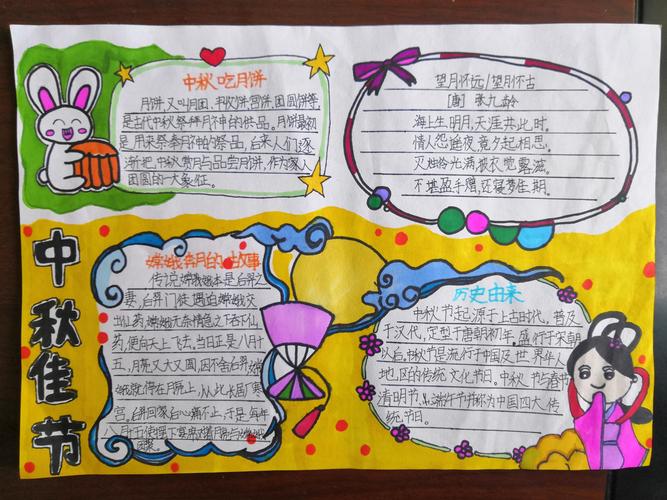 中秋吃月饼
月饼,又叫月团、丰收饼、宫饼、团圆饼等,
是古代中秋祭拜月神的供品。月饼最初
是用来祭奉月神的祭品,后来人们逐
渐把中秋赏月与品尝月饼,作为家人
团圆的一大象征。
望月怀远/望月怀古
[唐] 张九龄
海上生明月,天涯共此时。
情人怨遥夜,竟夕起相思。
灭烛怜光满,披衣觉露滋。
不堪盈手赠,还寝梦佳期。
中秋佳节
嫦娥奔月的故事
传说嫦娥本是后羿之
妻,后羿
仙药,嫦娥无奈情急之下吞下仙
药,便向天上飞去,当日正是八月十
五,月亮又大又圆,因不舍后羿,嫦
娥就停在月亮上,从此长居广寒
宫,后羿回家后心痛不止,于是每年
八月十
历史由来
中秋节起源于上古时代,普及
于汉代,定型于唐朝初年,盛行于宋朝
以后,中秋节是流行于中国及世界华人
地区的传统文化节日。中秋节与春节
清明节、端午节并称为中国四大传
统节日。